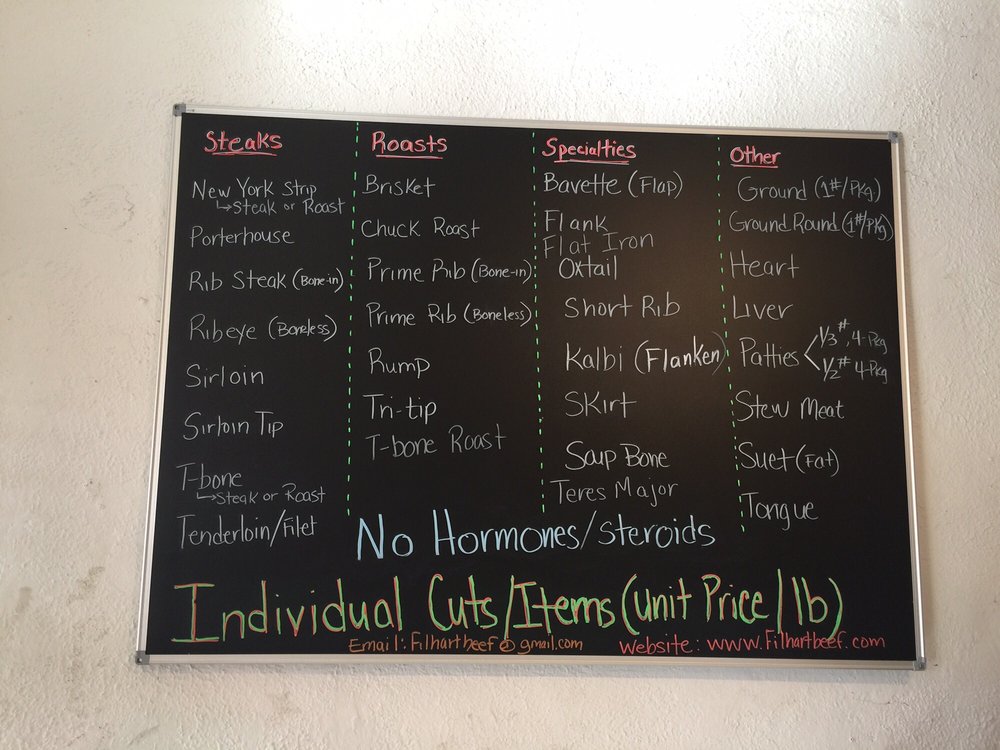 Steaks
New York Strip
↳Steak or Roast
Porterhouse
Rib Steak (Bone-in)
Ribeye (Boneless)
Sirloin
Sirloin Tip
T-bone
↳Steak or Roast
Tenderloin/Filet
Roasts
Brisket
Chuck Roast
Prime Rib (Bone-in)
Prime Rib (Boneless)
Rump
Tri-tip
T-bone Roast
Specialties
Bavette (Flap)
Flank
Flat Iron
Oxtail
Short Rib
Kalbi (Flanken)
Skirt
Soup Bone
Teres Major
Other
Ground (1#/Pkg)
Ground Round (1#/Pkg)
Heart
Liver
Patties < 1/3#, 4-Pkg
1/2# 4-Pkg
Stew Meat
Suet (Fat)
Tongue
No Hormones/Steroids
Individual Cuts/Items (Unit Price/lb)
Email: Filhartbeef@gmail.com Website: www.Filhartbeef.com